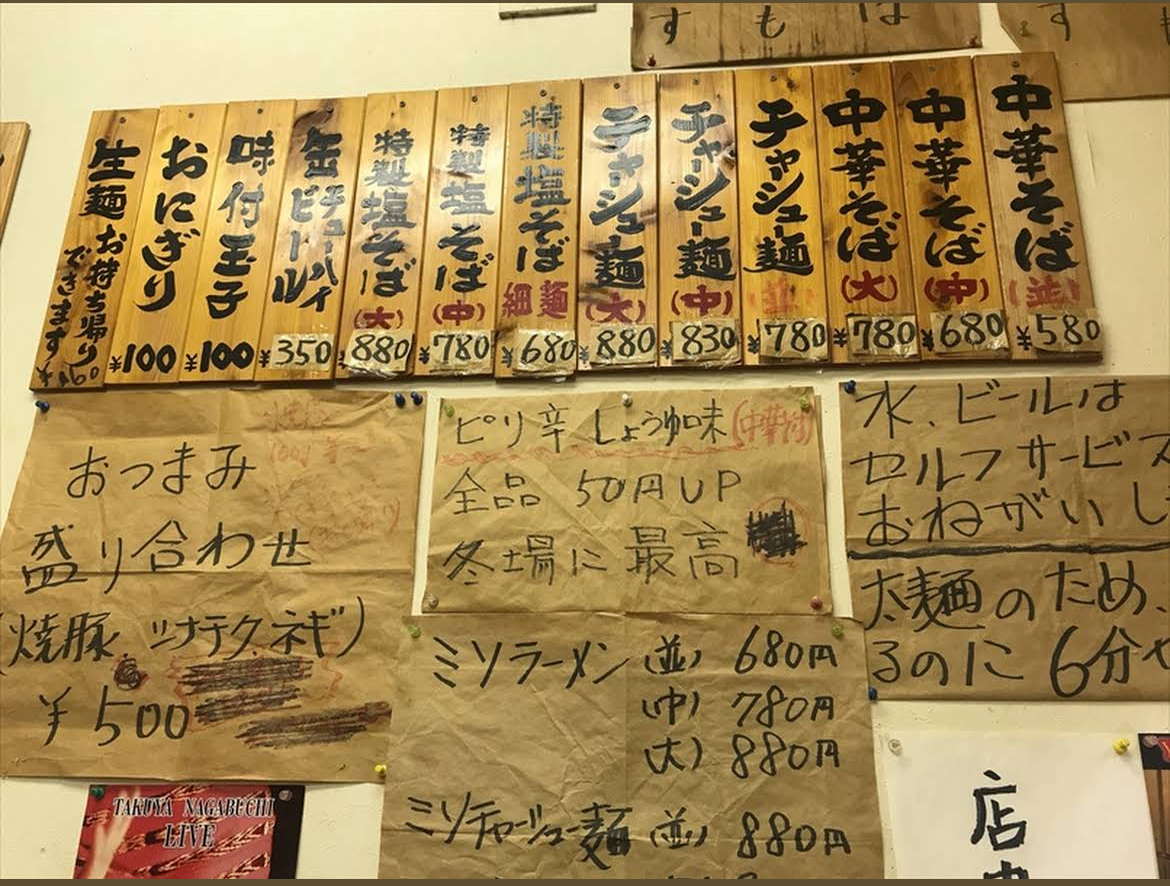 すもは
す
中華そば(並) ¥580
中華そば(中) ¥680
中華そば(大) ¥780
チャシュー麺 (並) ¥780
チャーシュー麺(中) ¥830
チャシュー麺(大) ¥880
特製塩そば 細麺 ¥680
特製塩そば(中) ¥780
特製塩そば(大) ¥880
缶チューハイ ビール ¥350
味付玉子 ¥100
おにぎり ¥100
生麺お持ち帰りできます ¥160
おつまみ
盛り合わせ
(焼豚、ツナテク、ネギ)
¥500
ピリ辛 しょうゆ味
全品 50円UP
冬場に最高
ミソラーメン (並) 680円
(中) 780円
(大) 880円
ミソチャーシュー麺 (並) 880円
水、ビールは
セルフサービス
おねがいし
太麺のため、
るのに 6分や
店
TAKUYA NAGABUCHI
LIVE